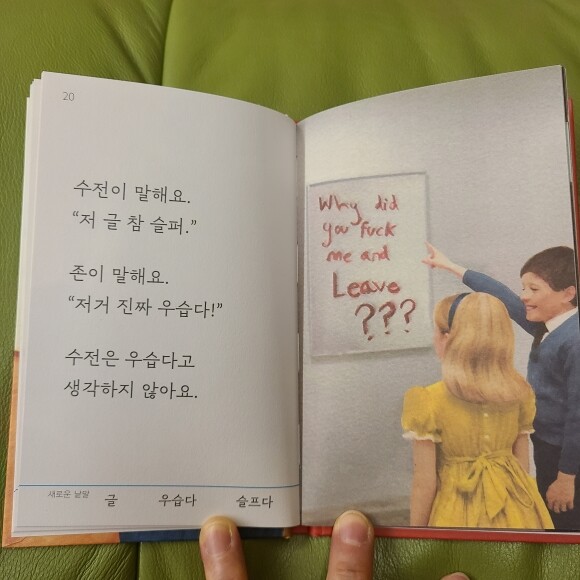 20
수전이 말해요.
“저 글 참 슬퍼.”
존이 말해요.
“저거 진짜 우습다!”
수전은 우습다고
생각하지 않아요.
새로운 낱말 글 우습다 슬프다
Why did
you fuck
me and
Leave
???